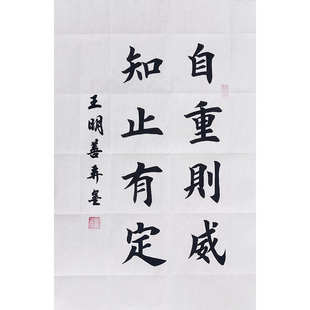 自重則威
知止有定
王明善弄墨